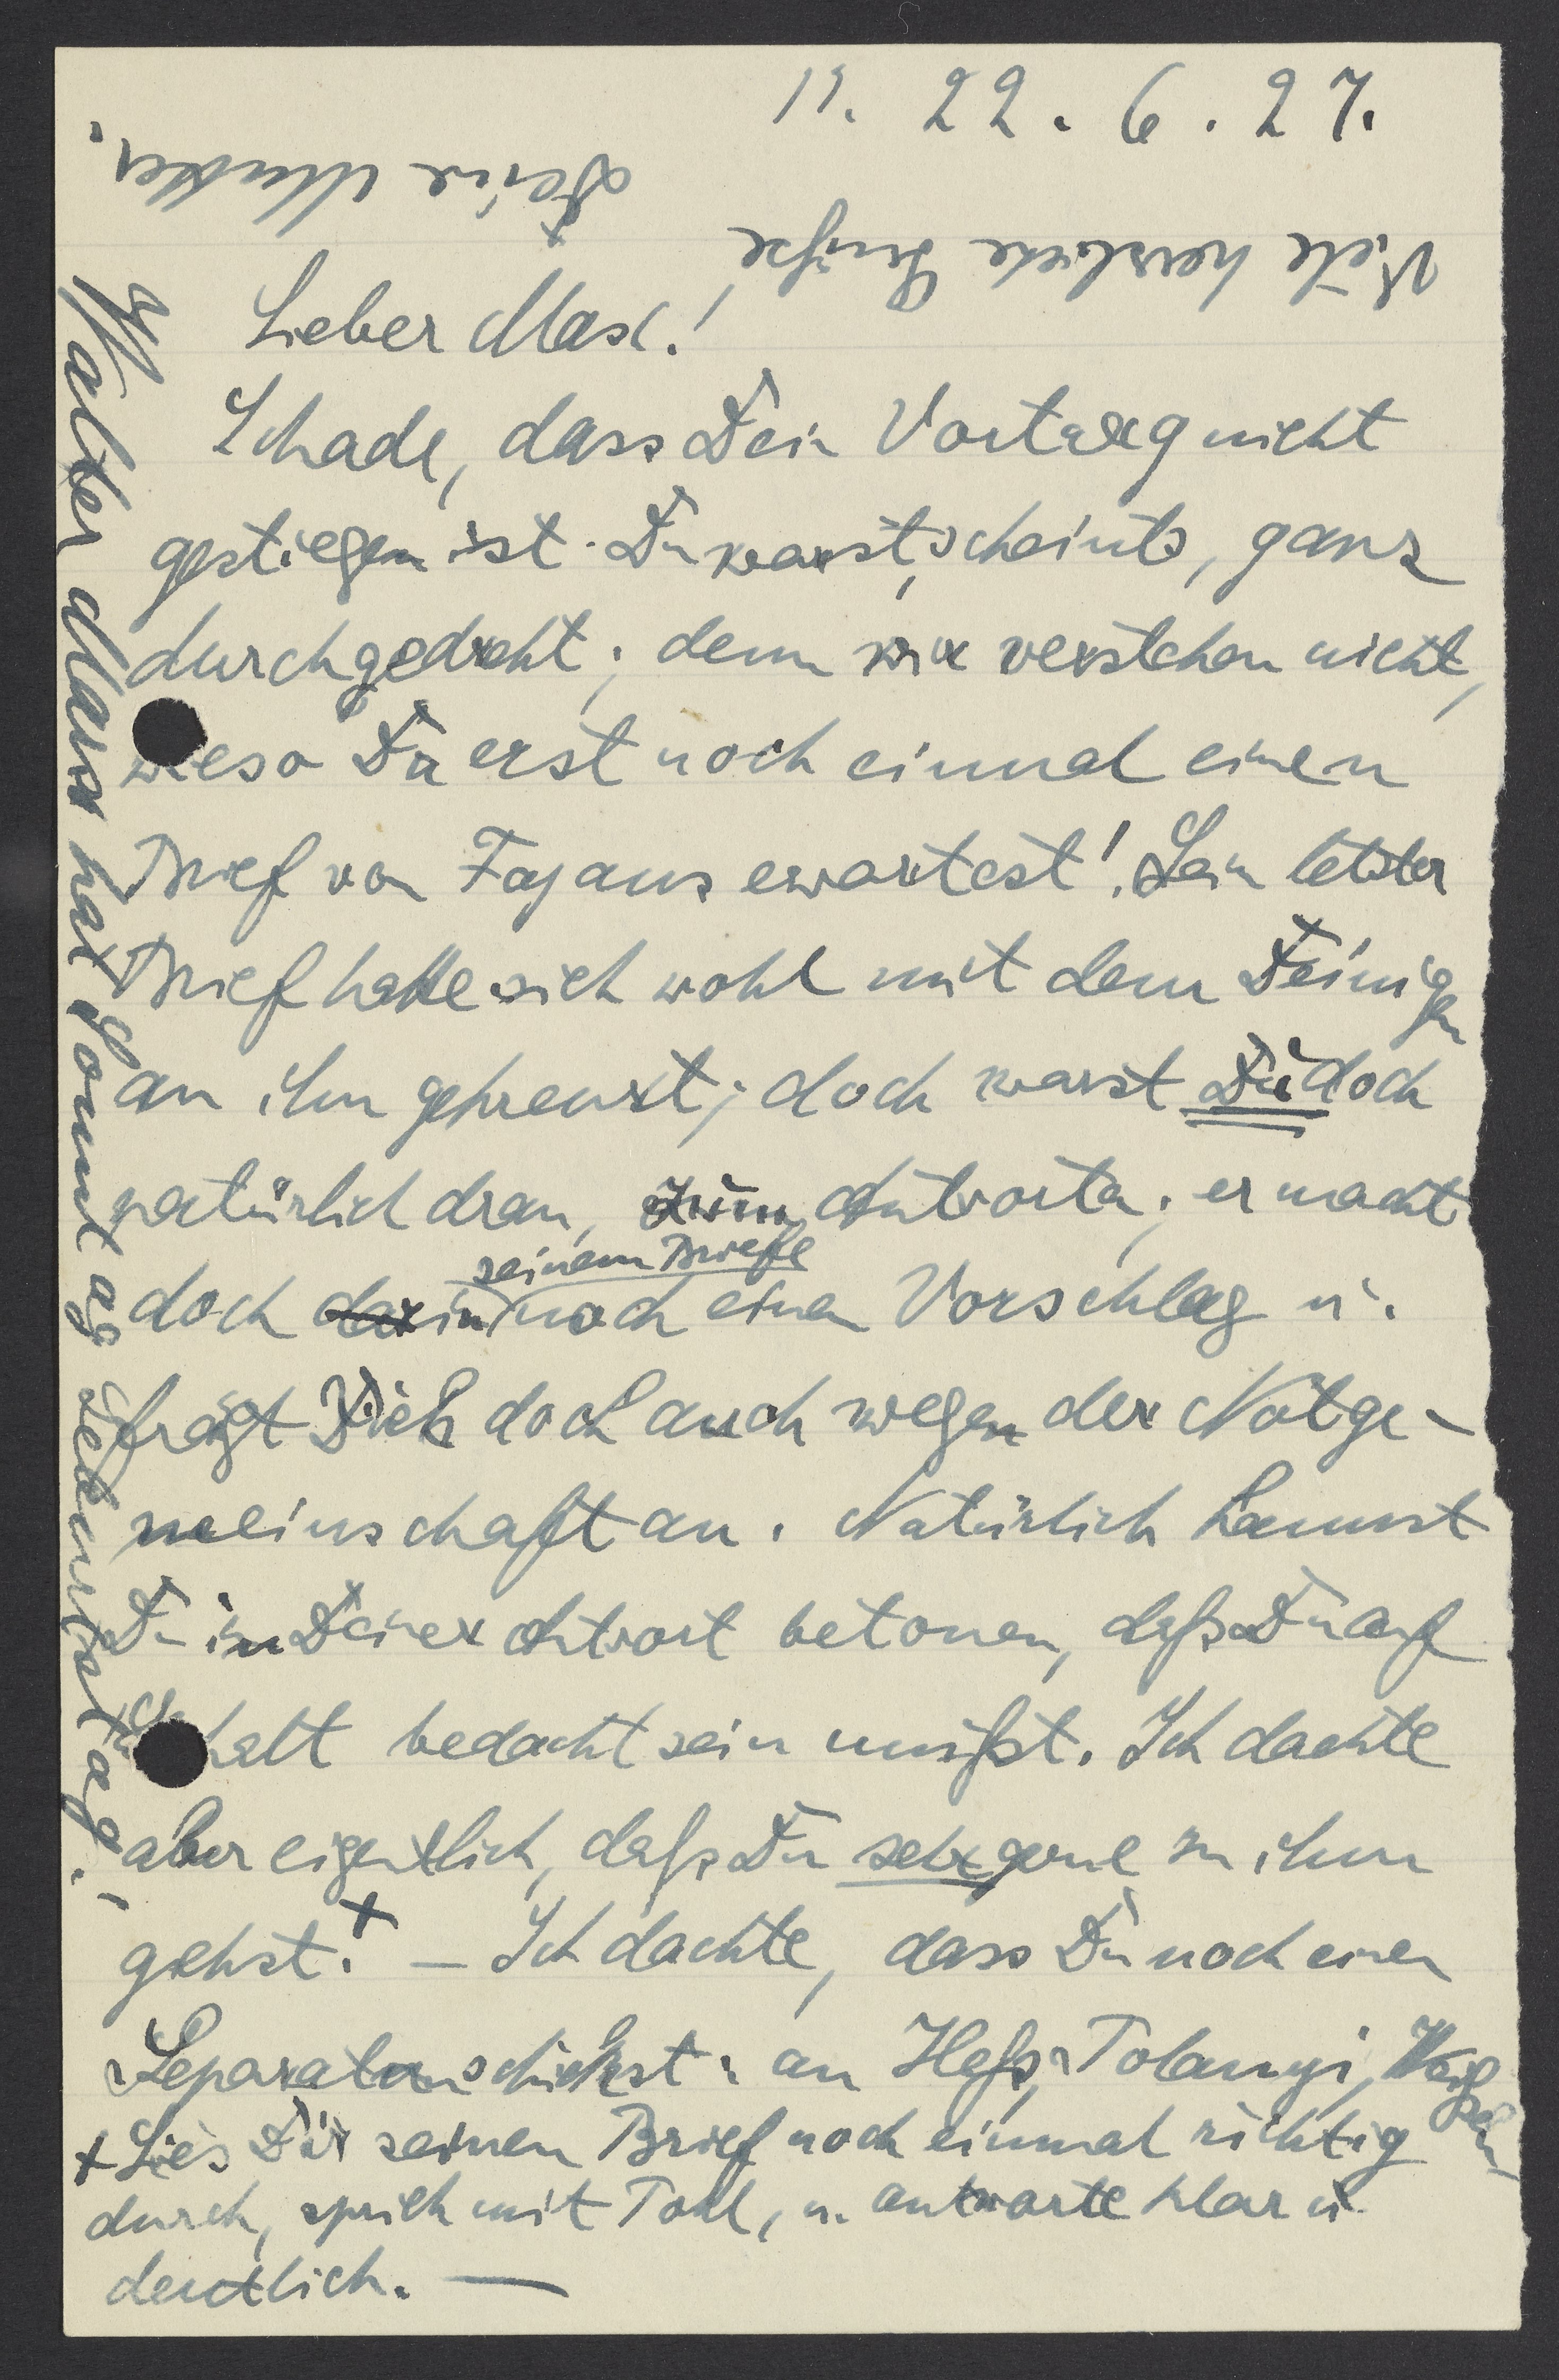 11. 22. 6. 27.
Lieber Max!
Schade, dass Dein Vortrag nicht
gestiegen ist. Du warst, scheints, ganz
durchgedreht; denn wir verstehen nicht,
wieso Du erst noch einmal einen
Brief von Fajans erwartest! Sein letzter
Brief hatte sich wohl mit dem Deinigen
an ihn gekreuzt; doch warst Du doch
natürlich dran, zum Antworten; er macht
doch darin seinem Briefe noch einen Vorschlag u.
frägt Dich doch auch wegen der Notge-
meinschaft an. Natürlich kannst
Du in Deiner Antwort betonen, daß Du auf
Gehalt bedacht sein mußt. Ich dachte
aber eigentlich, daß Du sehr gerne zu ihm
gehst! + – Ich dachte, dass Du noch einen
Separata schickst: an Heß, Polanyi,
+ Lies Dir seinen Brief noch einmal richtig
durch, sprich mit Pohl, u. antworte klar u.
deutlich. —
Walter Marx hat Sonntag Geburtstag!
Viele herzliche Grüße
Deine Mutter.